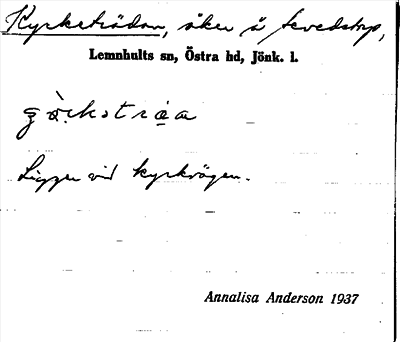 Kyrketrädan, åker å Sevedstorp,
Lemnhults sn, Östra hd, Jönk. l.
Ligger vid kyrkvägen.
Annalisa Anderson 1937